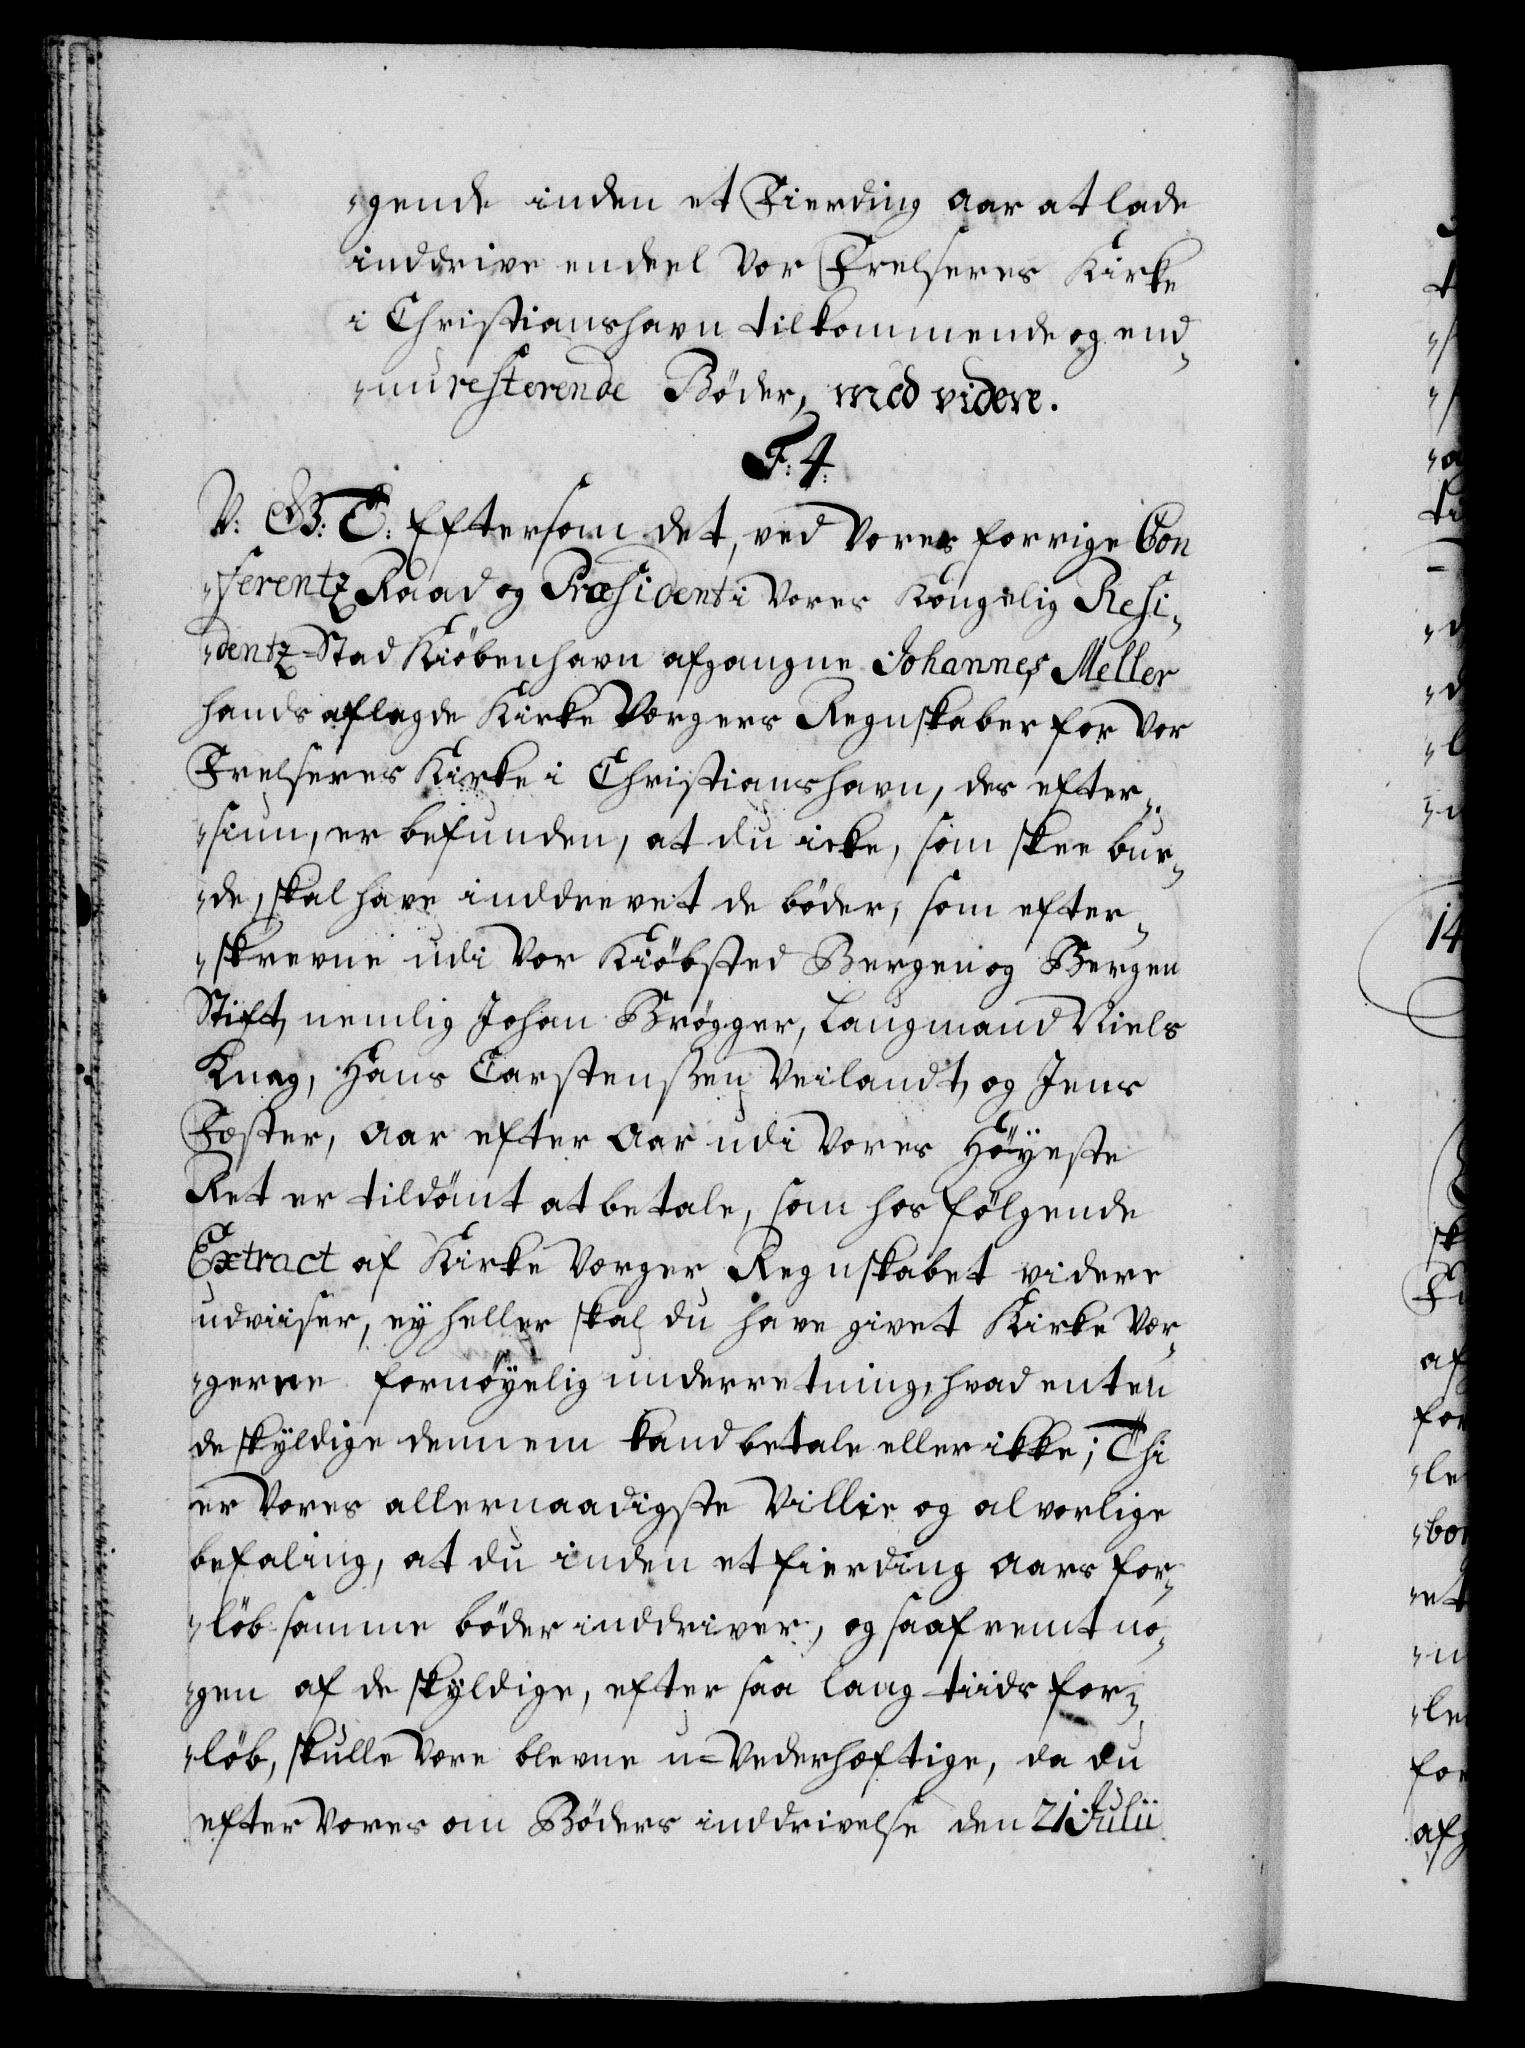 -gende inden et Fierding Aar at lade
inddrive endeel Vor Frelseres Kirke
i Christianshavn tilkommende og end-
-nu resterende Bøder, med videre.
F: 4.
V: G: T: Eftersom det, ved Vores forrige Con
-ferentz Raad og Præsident i Vores Kongelig Resi-
-dentz-Stad Kiøbenhavn afgangne Johannes Meller
hands aflagde Kirke Værgers Regnskaber for Vor
Frelseres Kirke i Christianshavn, des efter-
-siun, er befunden, at du icke, som skee bur-
-de, skal have inddrevet de bøder, som efter-
-skrevne udi Vor Kiøbsted Bergen og Bergen
Stift, nemlig Johan Brøgger, Laugmand Niels
Knag, Hans Carstenßen Veilandt, og Jens
Fæster, Aar efter Aar udi Vores Høyeste
Ret er tildømt at betale, som hos følgende
Extract af Kirke Værger Regnskabet videre
udviiser, ey heller skal du have givet Kirke Vær-
-gerne fornøyelig underretning, hvad enten
de skyldige dennem kand betale eller ikke; Thi
er Vores allernaadigste Villie og alvorlige
befaling, at du inden et fierding Aars for-
-løb samme bøder inddriver, og saafremt no-
-gen af de skyldige, efter saa lang tiids for-
-løb, skulle være blevne u-Vederhæftige, da du
efter Vores om Bøders inddrivelse den 21 Julii